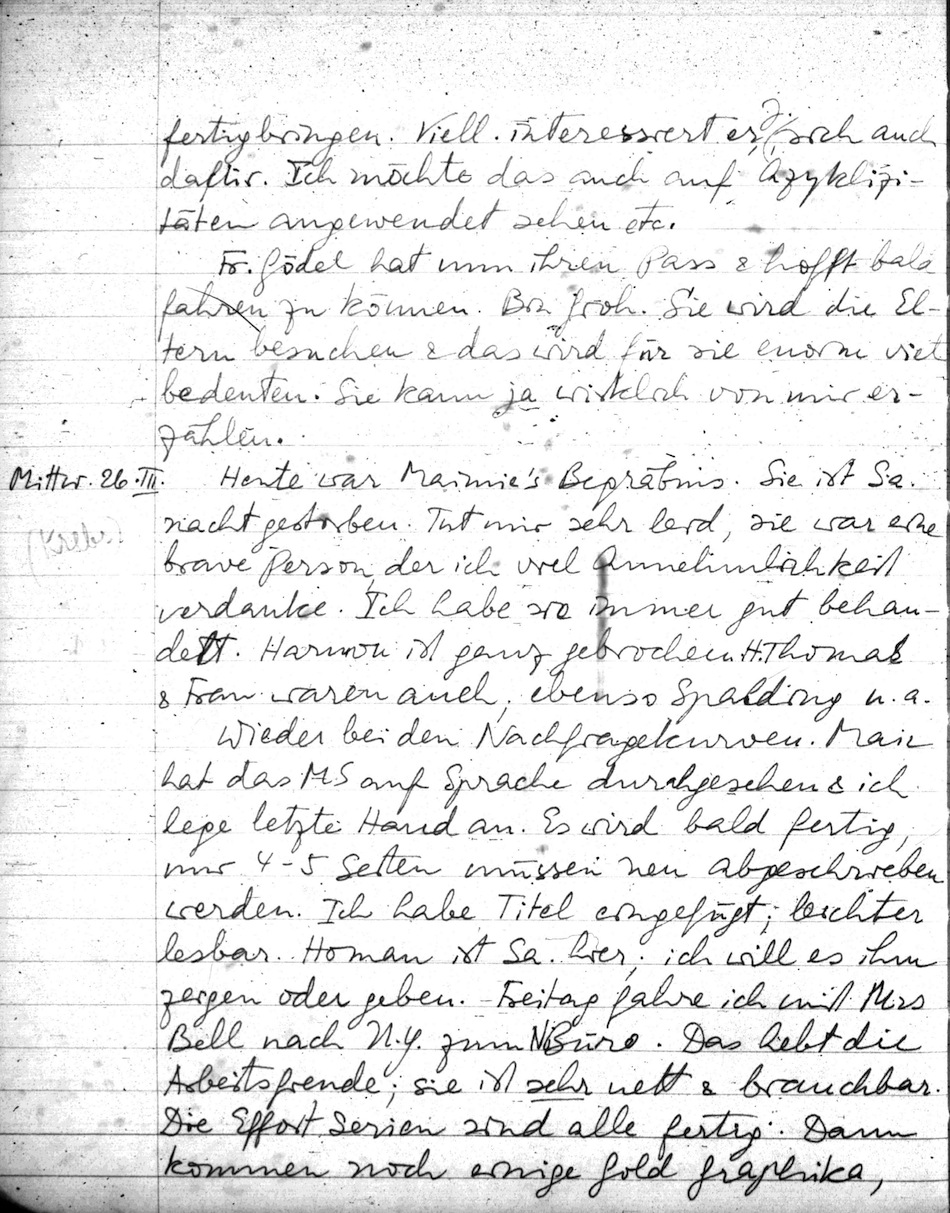 fertigbringen. Viell. interessiert er sich auch
dafür. Ich möchte das auch auf Azyklizi-
täten angewendet sehen etc.
Fr. Gödel hat nun ihren Pass & hofft bald
fahren zu können. Bin froh. Sie wird die El-
tern besuchen & das wird für sie enorm viel
bedeuten. Sie kann ja wirklich von mir er-
zählen.
Mittw. 26.III. Heute war Maimie's Begräbnis. Sie ist Sa.
nacht gestorben. Tut mir sehr leid, sie war eine
(Krebs)
brave Person, der ich viel Annehmlichkeit
verdanke. Ich habe sie immer gut behan-
delt. Harmon ist ganz gebrochen. H. Thomas
& Frau waren auch, ebenso Spalding u.a.
Wieder bei den Nachfragekurven. Mair
hat das MS auf Sprache durchgesehen & ich
lege letzte Hand an. Es wird bald fertig,
nur 4-5 Seiten müssen neu abgeschrieben
werden. Ich habe Titel eingefügt; leichter
lesbar. Homan ist Sa. hier; ich will es ihm
zeigen oder geben. - Freitag fahre ich mit Mrs
Bell nach N.Y. zum NBüro. Das hebt die
Arbeitsfreude; sie ist sehr nett & brauchbar.
Die Effort Serien sind alle fertig. Dann
kommen noch einige Gold Graphika,